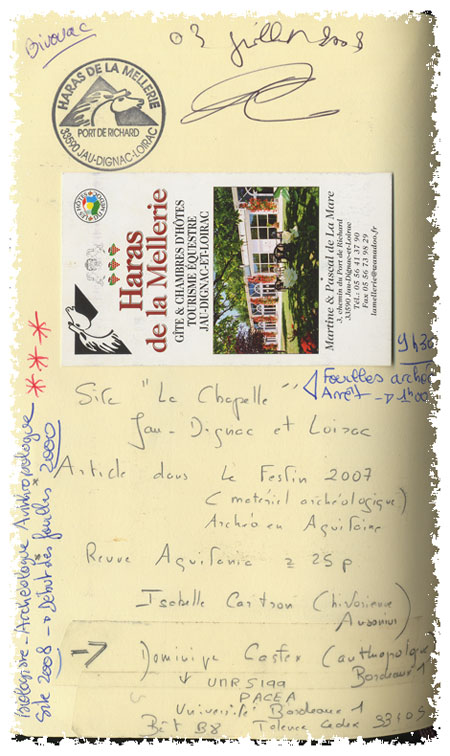 Bivouac
03 juillet 2008
HARAS DE LA MELLERIE
PORT DE RICHARD
33590 JAU-DIGNAC-LOIRAC
Haras
de la Mellerie
GÎTE & CHAMBRES D'HÔTES
TOURISME ÉQUESTRE
JAU-DIGNAC-ET-LOIRAC
Martine & Pascal de La Marc
3, chemin du Port de Richard
33590 Jau-Dignac-et-Loirac
Tél.: 05 56 41 37 90
Fax 05 56 73 98 29
lamellerie@wanadoo.fr
9h30
Fouilles archéo
Arrêt → 1h00
Site "La Chapelle"
Jau-Dignac et Loirac
Article dans Le Festin 2007
(matériel archéologique)
Archéo en Aquitaine
Revue Aquitania ≈ 25 p
Isabelle Cartron (historienne
Ausonius)
→ Dominique Castex (anthropologue
Bordeaux 1
↓ UMR 5199
PACEA
Université Bordeaux 1
Bât B8 Talence Cedex 33405
Biologiste - Archéologue Anthropologue
Site 2008 → Début des fouilles 2000